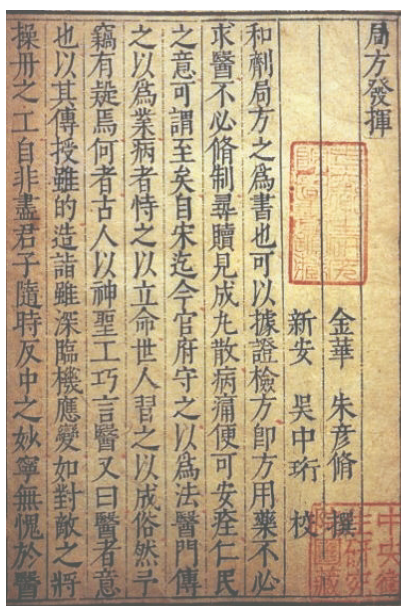 局方發揮
金華 朱彥脩 撰
新安 吳中珩 校
和劑局方之爲書也可以據證檢方卽方用藥不必
求醫不必脩制尋贖見成丸散病痛便可安痊仁民
之意可謂至矣自宋迄今官府守之以爲法醫門傳
之以爲業病者恃之以立命世人習之以成俗然予
竊有疑焉何者古人以神聖工巧言醫又曰醫者意
也以其傳授雖的造詣雖深臨機應變如對敵之將
操舟之工自非盡君子隨時反中之妙寧無愧於醫
中央衛
生研究